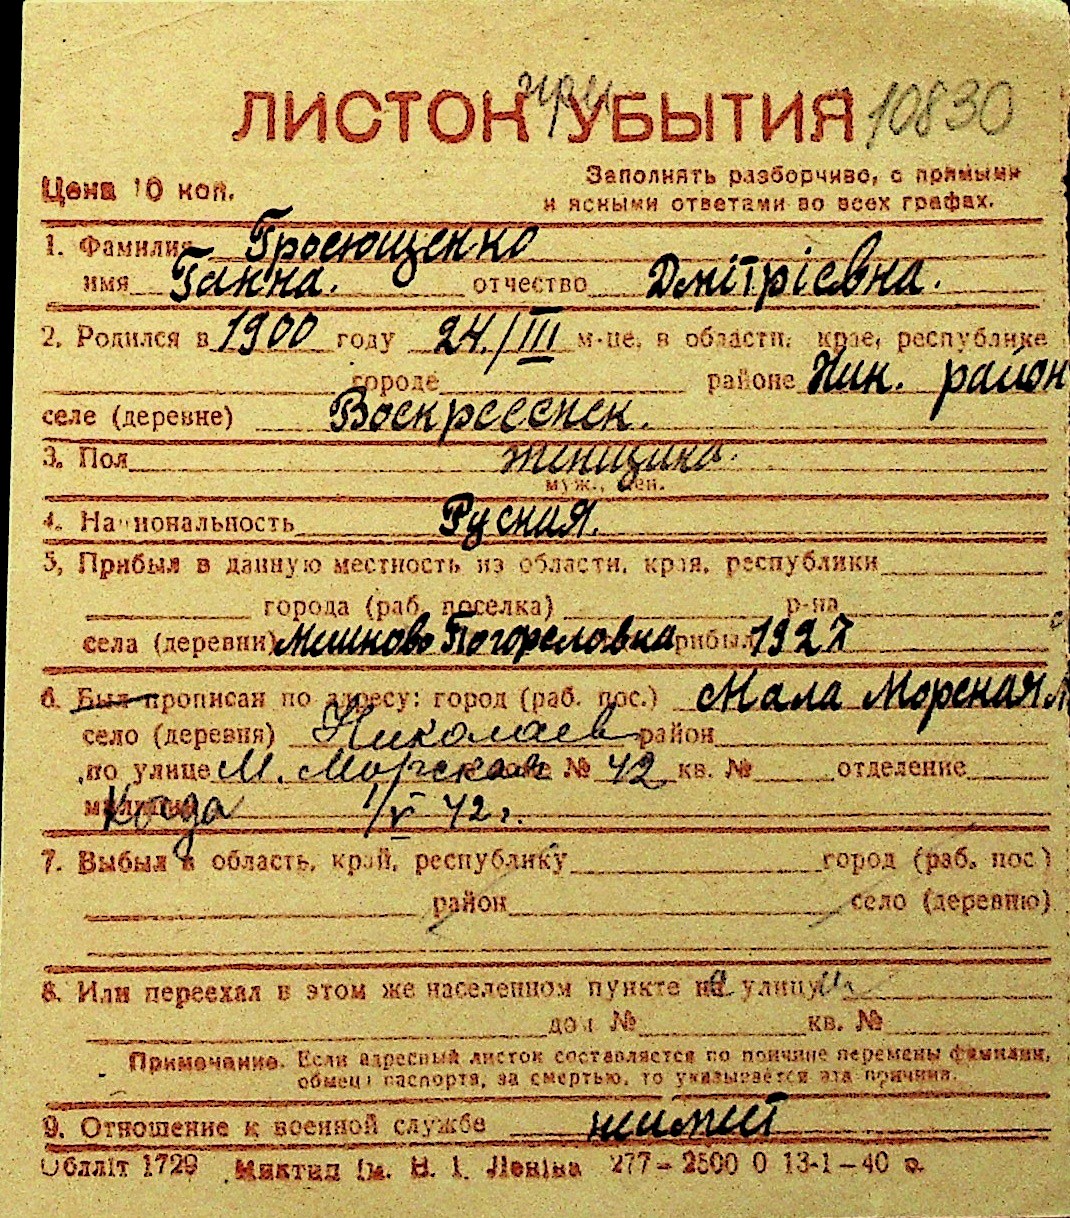 ЛИСТОК при УБЫТИЯ 10830
Цена 10 коп.
Заполнять разборчиво, с прямыми
и ясными ответами во всех графах.
1. Фамилия Гроеющенко
имя Ганна. отчество Дмітріевна.
2. Родился в 1900 году 24./III м-це, в области, крае, республике
городе районе Ник. район
селе (деревне) Воскресенск.
3. Пол женщина.
муж., жен.
4. Национальность Русная.
5, Прибыл в данную местность из области, края, республики
города (раб. поселка) р-на
села (деревни) Погореловка прибыл 1927
6. Был прописан по адресу: город (раб. пос.) Мала Морсная
село (деревня) Николаев район
по улице М. Морская № 42 кв. № отделение
Когда 1/V 42 г.
7. Выбыл в область, край, республику город (раб. пос)
район село (деревню)
8. Или переехал в этом же населенном пункте на улицу
дом № кв. №
Примечание. Если адресный листок составляется по причине перемены фамилии,
обмена паспорта, за смертью, то указывается эта причина.
9. Отношение к военной службе
Обллiт 1729 Миктип iм. В. I. Ленiна 277–2500 0 13-1–40 р.